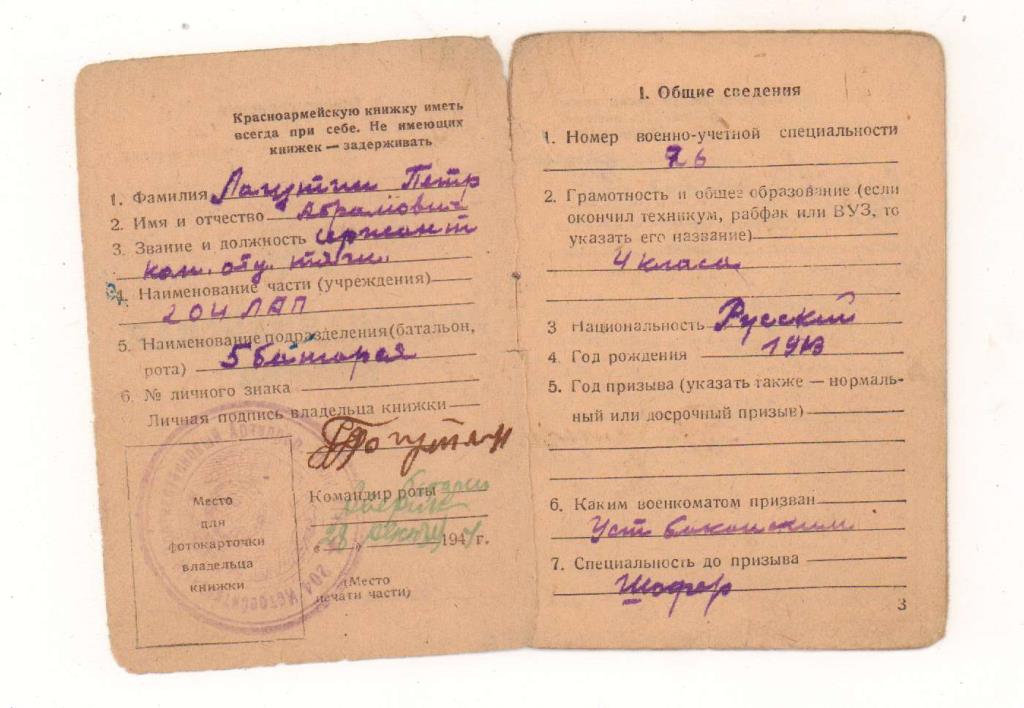 Красноармейскую книжку иметь
всегда при себе. Не имеющих
книжек — задерживать
1. Фамилия Лагутин Петр
2. Имя и отчество Абрамович
3. Звание и должность сержант
ком. отд. тяги
4. Наименование части (учреждения)
204 ЛАП
5. Наименование подразделения (батальон,
рота) 5 батарея
6. № личного знака
Личная подпись владельца книжки
Место
для
фотокарточки
владельца
книжки
Командир роты
„28“ 194 г.
(Место
печати части)
I. Общие сведения
1. Номер военно-учетной специальности
76
2. Грамотность и общее образование (если
окончил техникум, рабфак или ВУЗ, то
указать его название)
4 класа
3 Национальность Русский
4. Год рождения 1913
5. Год призыва (указать также — нормаль-
ный или досрочный призыв)
6. Каким военкоматом призван
Уст
7. Специальность до призыва
Шофер
3